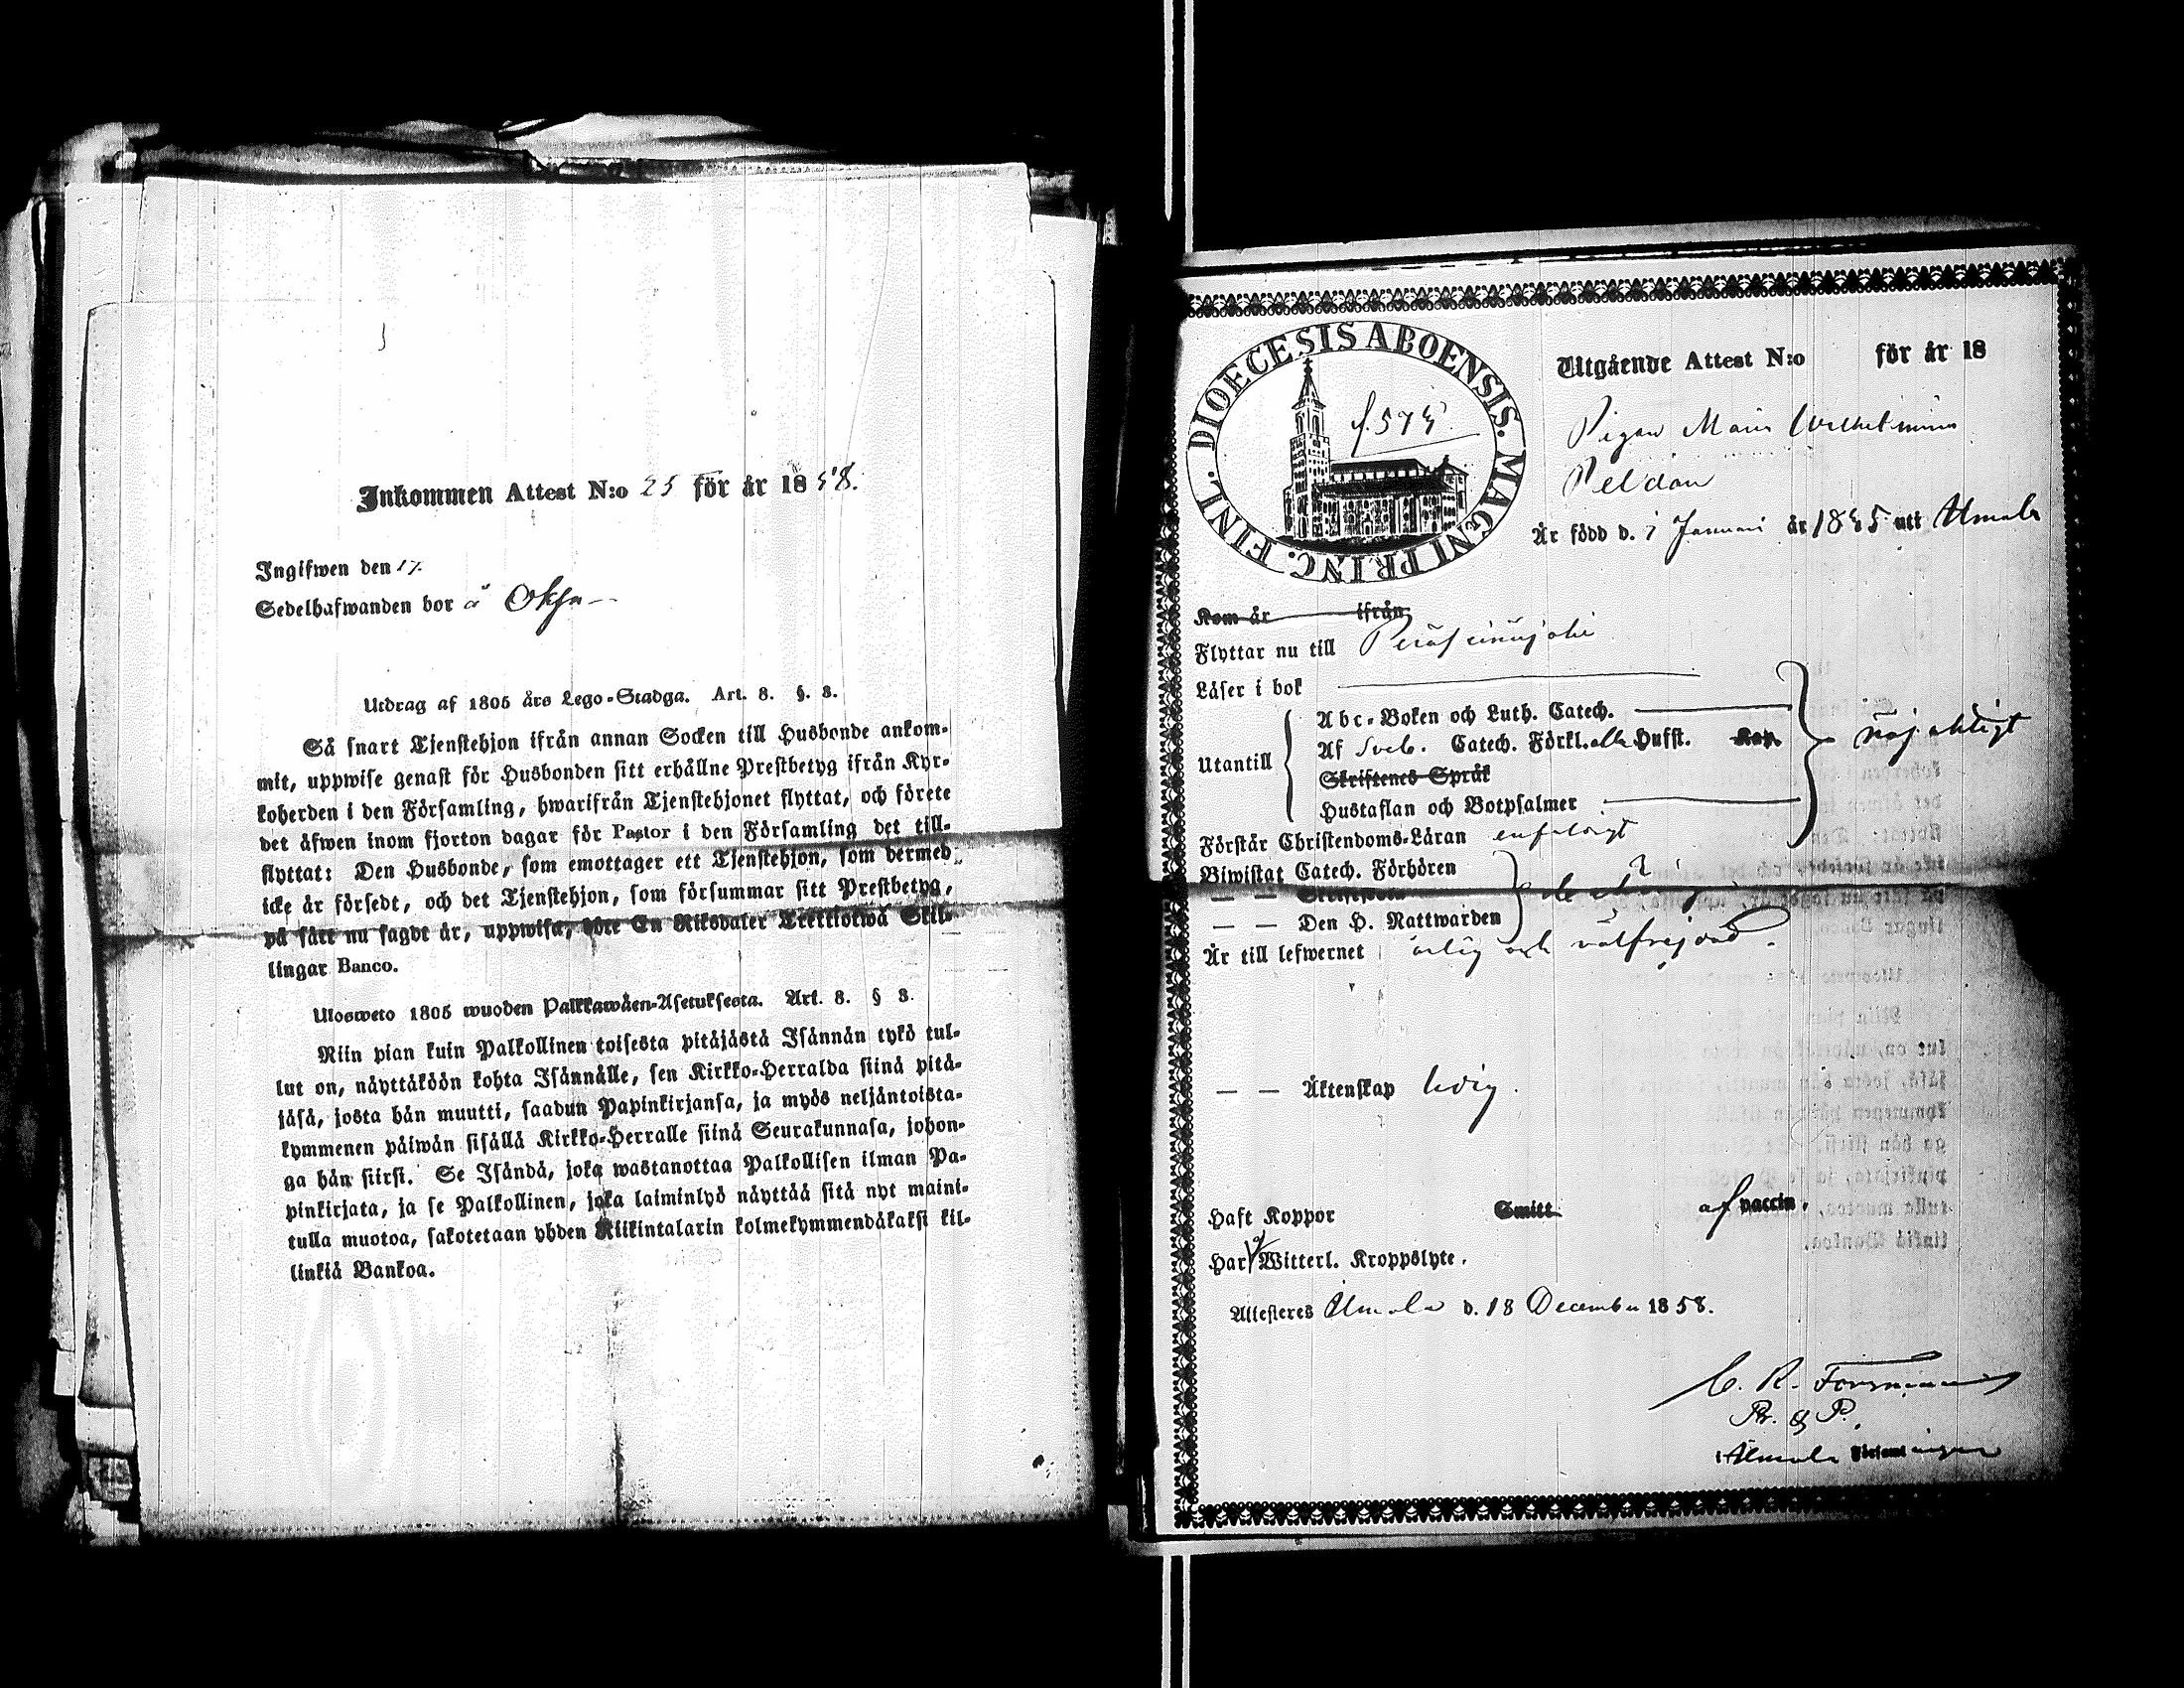 Inkommen Attest N:o 25 för år 1858.
Ingifwen den 17.
Sedelhafwanden bor å Oksa
Utdrag af 1805 års Lego-Stadga. Art. 8. §. 3.
Så snart Tjenstehjon ifrån annan Socken till Husbonde ankom-
mit, uppwise genast för Husbonden sitt erhållne Prestbetyg ifrån Kyr-
koherden i den Församling, hwarifrån Tjenstehjonet flyttat, och förete
det åfwen inom fjorton dagar för Pastor i den Församling det till-
flyttat: Den Husbonde, som emottager ett Tjenstehjon, som dermed
icke är försedt, och det Tjenstehjon, som försummar sitt Prestbetyg,
på sätt nu sagdt är, uppwisa, böte En Riksdaler Trettiotwå Skil-
lingar Banco.
Ulosweto 1805 wuoden Palkkawåen-Asetuksesta. Art. 8. § 3.
Niin pian kuin Palkollinen toisesta pitåjåstå Isånnån tykö tul-
lut on, nåyttåköön kohta Isånnålle, sen Kirkko-Herralda siinå pitå-
jåså, josta hån muutti, saadun Papinkirjansa, ja myös neljåntoista-
kymmenen påiwån sisållå Kirkko-Herralle siinå Seurakunnasa, johon-
ga hån siirsi. Se Isåndå, joka wastanottaa Palkollisen ilman Pa-
pinkirjata, ja se Palkollinen, joka laiminlyö nåyttåå sitå nyt maini-
tulla muotoa, sakotetaan yhden Riikintalarin kolmekymmendåkaksi kil-
linkiå Bankoa.
DIOECESIS ABOENSIS. MAGNI PRINC. FINL.
Utgående Attest N:o för år 18
Pigan Maria Wilhelmina
Peldan
Är född d. 7 Januari år 1835 uti Ilmola
Kom år ifrån
Flyttar nu till Peräseinäjoki
Läser i bok
Abc-Boken och Luth. Catech.
Utantill Af Sveb. Catech. Förkl. alla Hufst. Kap. nöjaktigt
Skriftenes Språk
Hustaflan och Botpsalmer
Förstår Christendoms-Läran enfaldigt
Biwistat Catech. Förhören
— — Den H. Nattwarden
Är till lefwernet ärlig och välfrejdad.
— — Äktenskap ledig.
Haft Koppor Smitt. af vaccin.
Har Witterl. Kroppslyte.
Attesteres Ilmola d. 18 December 1858.
C. R. Forsman
Pr. & P.
i Ilmola Församlingar